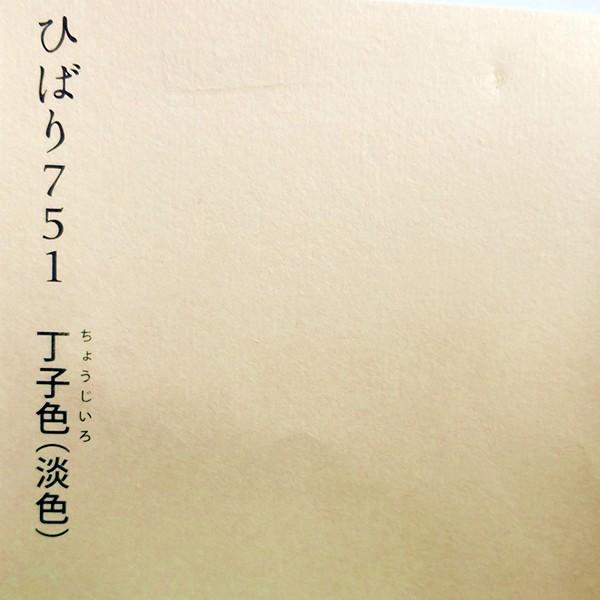 ひばり751 丁子色(淡色)
ちょうじいろ